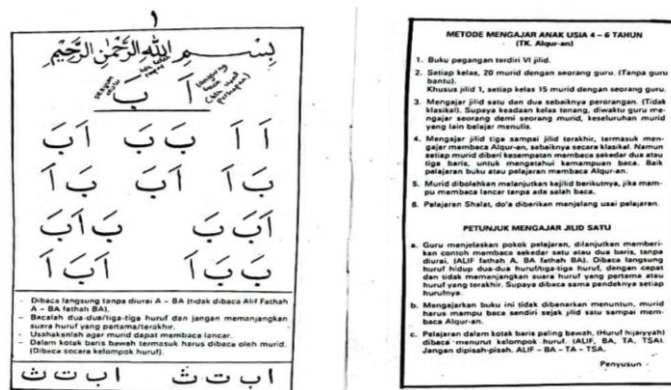 ١
بِسْمِ اللهِ الرَّحْمٰنِ الرَّحِيْمِ
اَ بَ
اَ اَ بَ بَ اَ بَ
بَ اَ اَ بَ بَ اَ
اَ بَ بَ بَ اَ بَ
بَ بَ اَ اَ بَ اَ
- Dibaca langsung tanpa diurai A – BA (tidak dibaca Alif Fathah
A – BA fathah BA).
- Bacalah dua-dua/tiga-tiga huruf dan jangan memanjangkan
suara huruf yang pertama/terakhir.
- Usahakanlah agar murid dapat membaca lancar.
- Dalam kotak baris bawah termasuk harus dibaca oleh murid.
(Dibaca secara kelompok huruf).
ا ب ت ث ا ب ت ث
METODE MENGAJAR ANAK USIA 4 – 6 TAHUN
(TK. Alqur-an)
1. Buku pegangan terdiri VI jilid.
2. Setiap kelas, 20 murid dengan seorang guru. (Tanpa guru
bantu).
Khusus jilid 1, setiap kelas 15 murid dengan seorang guru.
3. Mengajar jilid satu dan dua sebaiknya perorangan. (Tidak
klasikal). Supaya keadaan kelas tenang, diwaktu guru me-
ngajar seorang demi seorang murid, keseluruhan murid
yang lain belajar menulis.
4. Mengajar jilid tiga sampai jilid terakhir, termasuk men-
gajar membaca Alqur-an, sebaiknya secara klasikal. Namun
setiap murid diberi kesempatan membaca sekedar dua atau
tiga baris, untuk mengetahui kemampuan baca. Baik
pelajaran buku atau pelajaran membaca Alqur-an.
5. Murid dibolehkan malanjutkan kejilid berikutnya, jika mam-
pu membaca lancar tanpa ada salah baca.
6. Pelajaran Shalat, do'a diberikan menjelang usai pelajaran.
PETUNJUK MENGAJAR JILID SATU
a. Guru menjelaskan pokok pelajaran, dilanjutkan memberi-
kan contoh membaca sekedar satu atau dua baris, tanpa
diurai. (ALIF fathah A, BA fathah BA). Dibaca langsung
huruf hidup dua-dua huruf/tiga-tiga huruf, dengan cepat
dan tidak memanjangkan suara huruf yang pertama atau
huruf yang terakhir. Supaya dibaca sama pendeknya setiap
hurufnya.
b. Mengajarkan buku ini tidak dibenarkan menuntun, murid
harus mampu baca sendiri sejak jilid satu sampai mem-
baca Alqur-an.
c. Pelajaran dalam kotak baris paling bawah, (Huruf hijaryyah)
dibaca menurut kelompok huruf. (ALIF, BA, TA, TSA).
Jangan dipisah-pisah. ALIF – BA – TA – TSA.
Penyusun